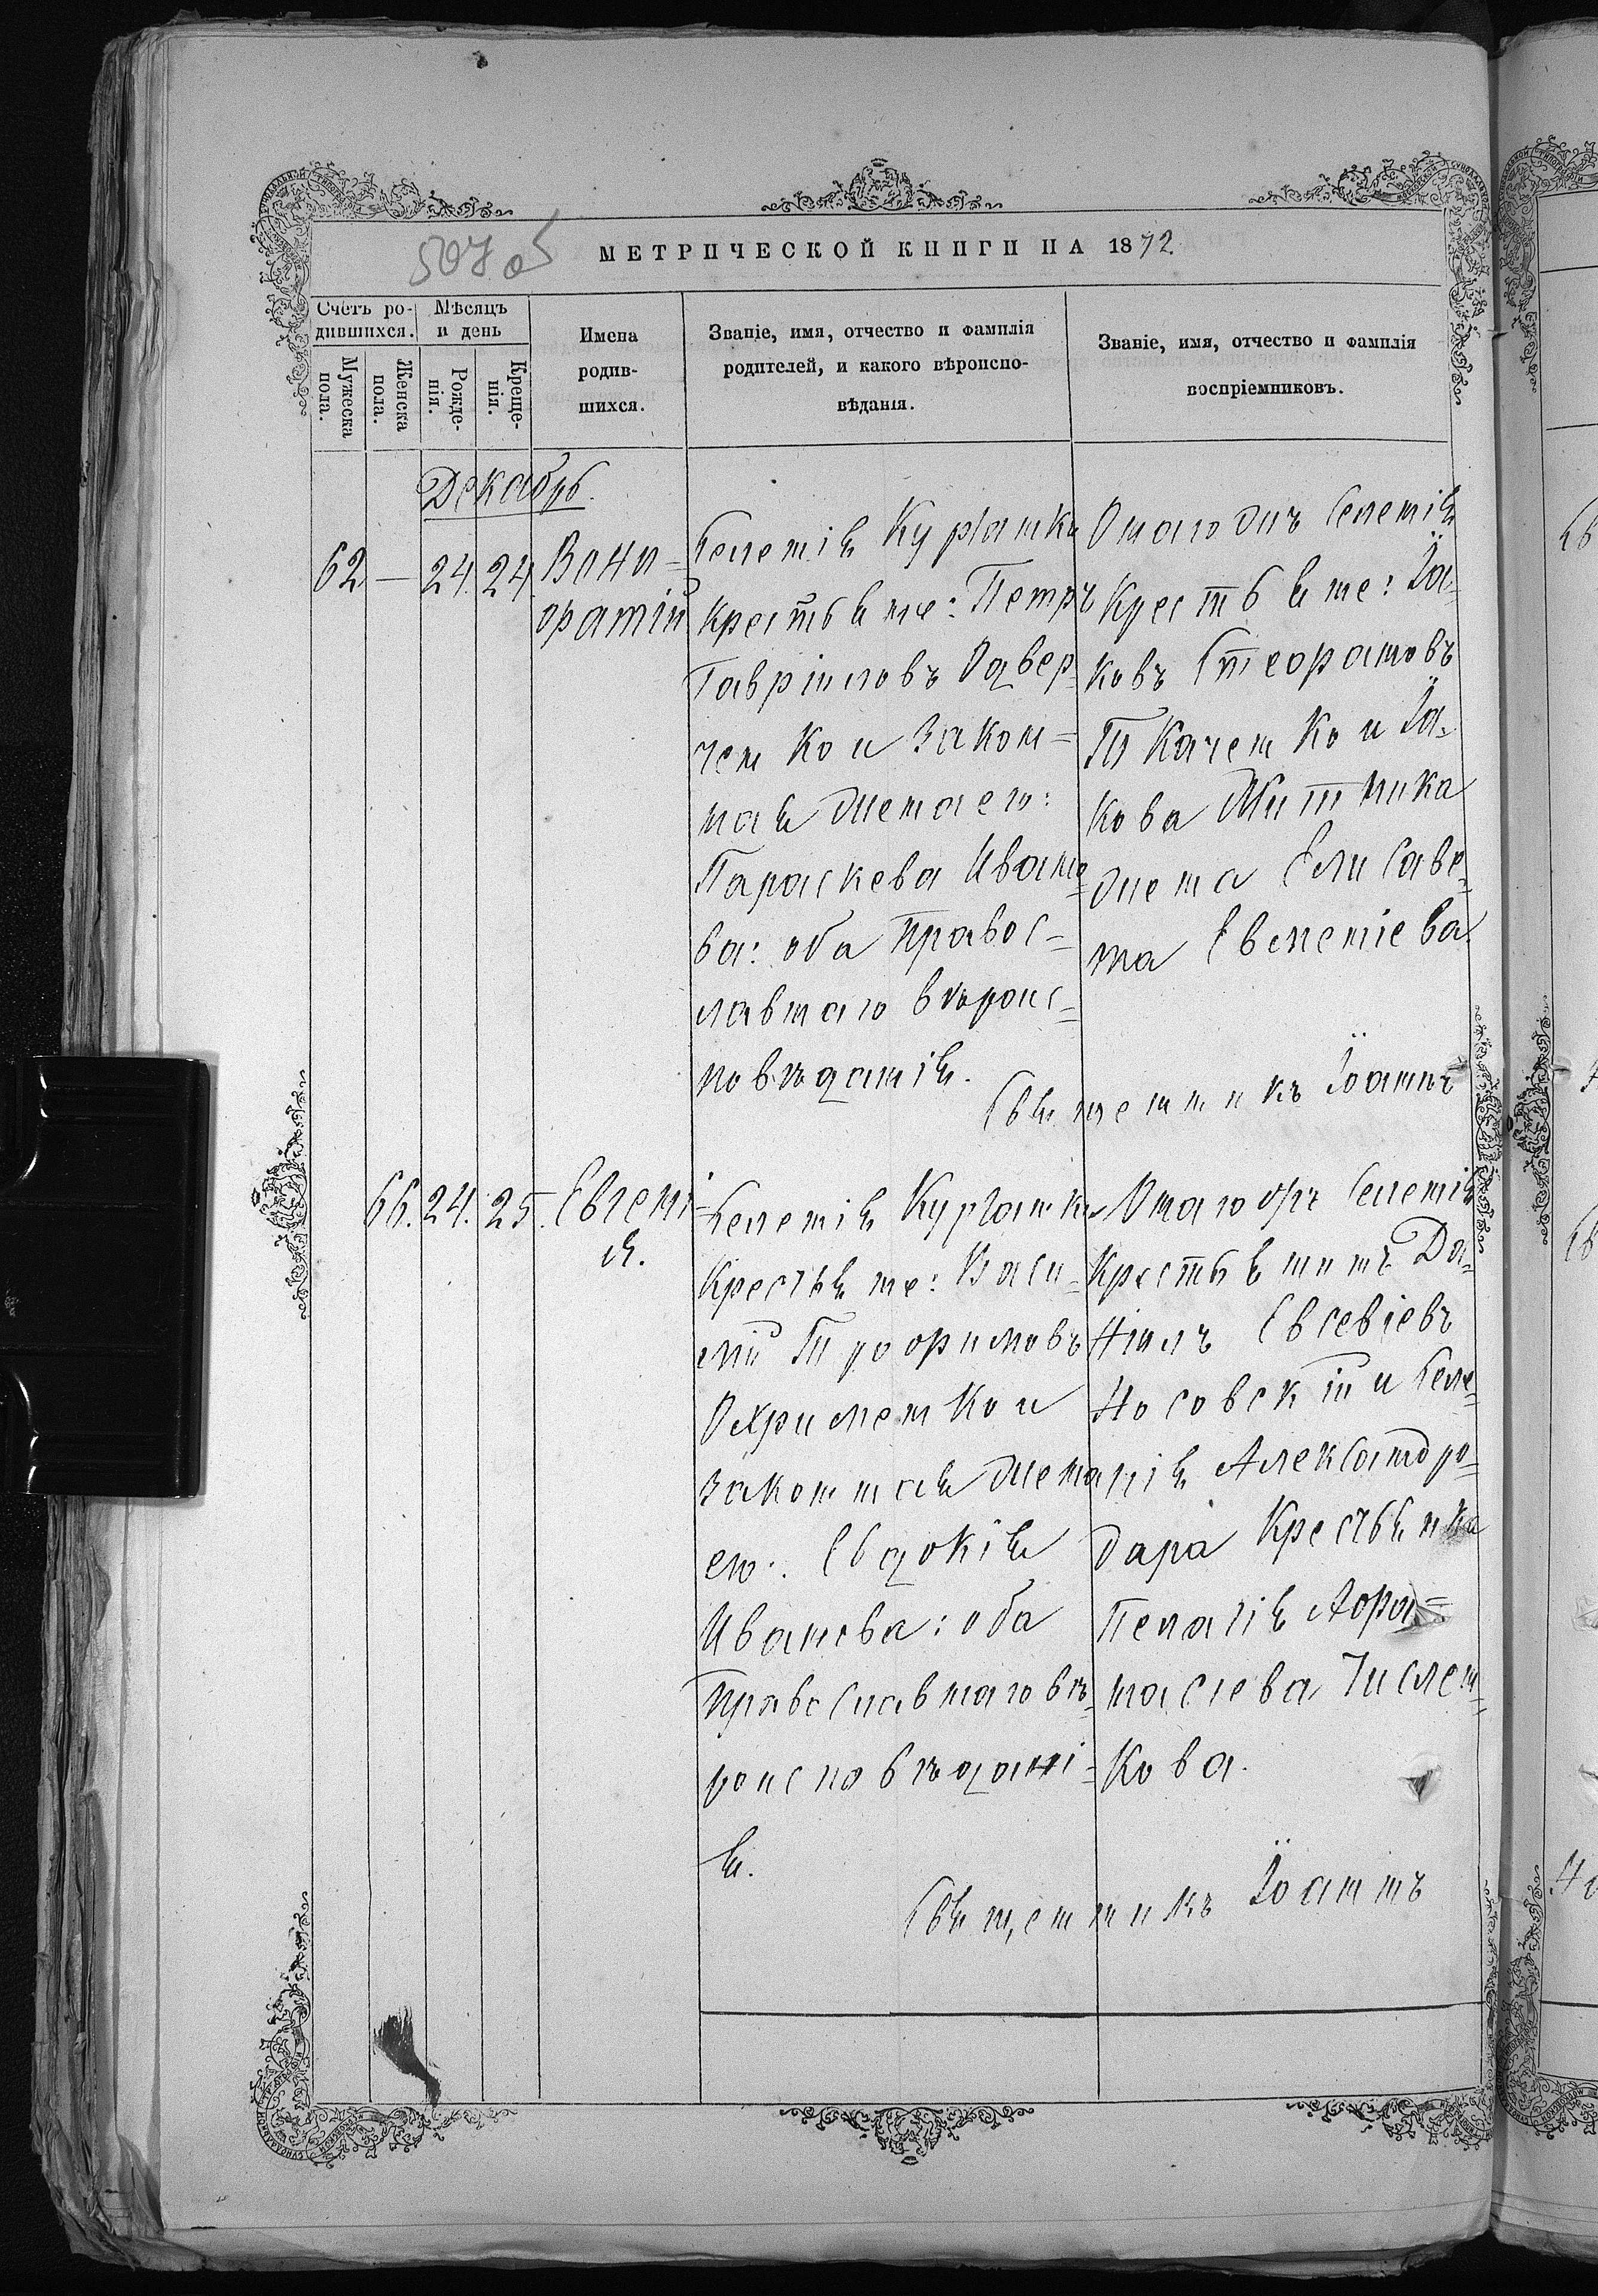 507 об
МЕТРИЧЕСКОЙ КНИГИ НА 1872.
Счетъ ро-
дившихся.
Мѣсяцъ
и день
Мужеска
пола.
Женска
пола.
Рожде-
нія.
Креще-
нія.
Имена
родив-
шихся.
Званіе, имя, отчество и фамилія
родителей, и какого вѣроиспо-
вѣданія.
Званіе, имя, отчество и фамилія
воспріемниковъ.
Декабрь.
62 — 24. 24. Вони-
фатій
Селенія Кургатки
крестьяне: Петръ
Гавріиловъ Одвер-
ченко и закон-
ная жена его:
Параскева Ивано-
ва: оба Правос-
лавнаго вѣроис-
повѣданія.
Онаго жъ Селенія
Крестьяне: Іа-
ковъ Стефановъ
Ткаченко и Іа-
кова Митника
жена Елисаве-
та Евменіева
Священникъ Іоаннъ
66. 24. 25. Евгені-
я.
Селенія Кургатки
Крестьяне: Васи-
лій Трофимовъ
Охрименко и
законная жена
его: Евдокія
Иванова: оба
Православнаго вѣ-
роисповѣдані-
я.
Онаго жъ Селенія
Крестьянинъ Да-
ніилъ Евсевіевъ
Носовскій и Селе-
нія Александро-
дара Крестьянка
Пелагія Афа-
насіева Числен-
кова.
Священникъ Іоаннъ